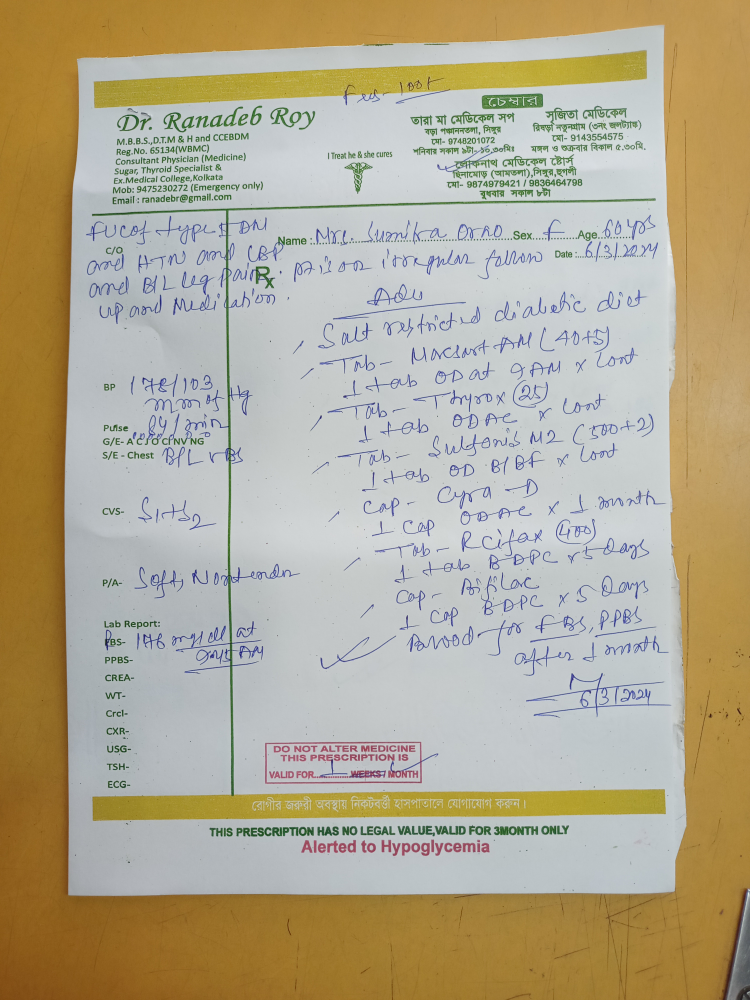 Fees- 100/-
Dr. Ranadeb Roy
M.B.B.S.,D.T.M & H and CCEBDM
Reg.No. 65134(WBMC)
Consultant Physician (Medicine)
Sugar, Thyroid Specialist &
Ex.Medical College,Kolkata
Mob: 9475230272 (Emergency only)
Email : ranadebr@gmail.com
I Treat he & she cures
চেম্বার
তারা মা মেডিকেল সপ
বড়া পঞ্চাননতলা, সিঙ্গুর
মো- 9748201072
শনিবার সকাল ৯টা- ১০.৩০মিঃ
সৃজিতা মেডিকেল
রিষড়া নতুনগ্রাম (৩নং জলট্যাঙ্ক)
মো- 9143554575
মঙ্গল ও শুক্রবার বিকাল ৫.৩০মি.
লোকনাথ মেডিকেল ষ্টোর্স
ছিনামোড় (আমতলা),সিঙ্গুর,হুগলী
মো- 9874979421 / 9836464798
বুধবার সকাল ৮টা
FUC of type II DM
C/O
and HTN and CBP
and B/L leg pain. pt is on irregular follow
up and Medication.
Name : Mrs. Sumitra Orao Sex F Age 60 yrs
Date : 6/3/2024
Rx
Adv
Salt restricted diabetic diet
Tab- Macsart AM (40+5)
1 tab OD at 9 AM x cont
Tab- Thyrox (25)
1 tab ODAC x cont
Tab- Sulfonis M2 (500+2)
1 tab OD B/BF x cont
Cap- Cyra-D
1 cap ODAC x 1 month
Tab- Rcifax (400)
1 tab BDPC x 5 days
Cap- Bifilac
1 cap BDPC x 5 Days
Blood- for FBS, PPBS
after 1 month
6/3/2024
BP 178/103
mm of Hg
Pulse 84/min
G/E- A C J O Cl NV NG
S/E - Chest B/L VBS
CVS- S1+S2
P/A- Soft, Nontender
Lab Report:
FBS- 176 mg/dl at
9:45 AM
PPBS-
CREA-
WT-
Crcl-
CXR-
USG-
TSH-
ECG-
DO NOT ALTER MEDICINE
THIS PRESCRIPTION IS
VALID FOR...1...WEEKS / MONTH
রোগীর জরুরী অবস্থায় নিকটবর্ত্তী হাসপাতালে যোগাযোগ করুন।
THIS PRESCRIPTION HAS NO LEGAL VALUE,VALID FOR 3MONTH ONLY
Alerted to Hypoglycemia